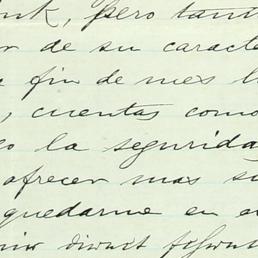 pero tant
de su caracte
fin de mes l
, cuentas como
o la seguridad
ofrecer mas su
quedarme en